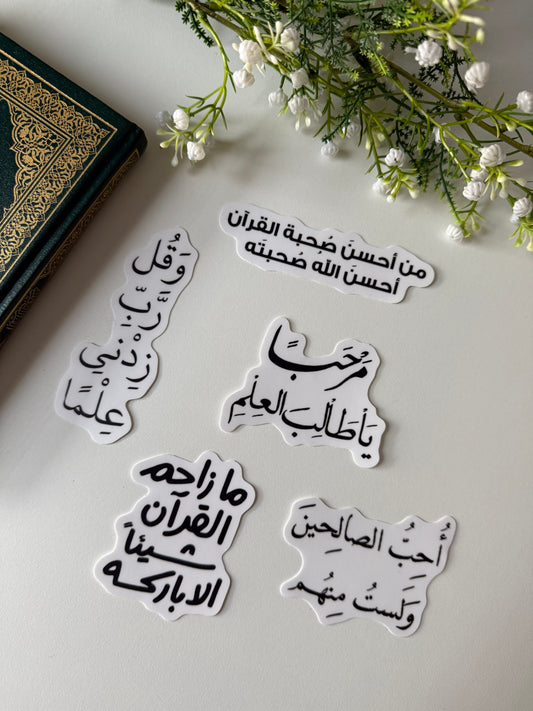 من أحسنَ صُحبة القرآن
أحسنَ الله صُحبتَه
وَقُل
رَّبِّ
زِدْنِي
عِلْمًا
مَرْحَبًا
يَا طَالِبَ العِلْمِ
ما زاحم
القرآن
شيئاً
الا باركه
أُحِبُّ الصالِحينَ
وَلَستُ مِنْهُم